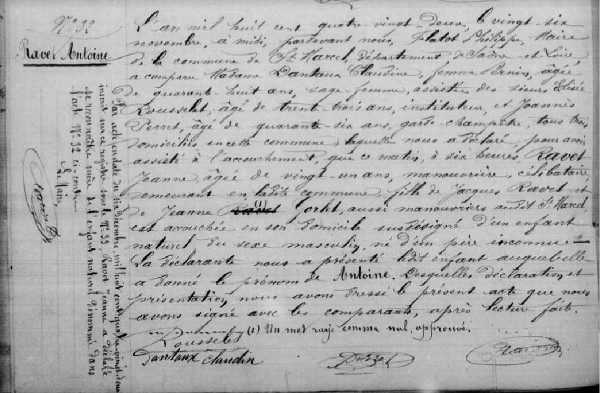 N° 32
Ravet Antoine
L'an mil huit cent quatre vingt deux, le vingt six
novembre, à midi, pardevant nous, Philippe, Maire
de la commune de St Marcel, département de Saône et Loire
a comparu Madame Pantaux Claudine, femme Benin, âgée
de quarante huit ans, sage-femme, assistée des sieurs Elisée
Rousselet, âgé de trente trois ans, instituteur et Joannès
Perret, âgé de quarante-six ans, garde champêtre, tous trois
domiciliés en cette commune laquelle nous a déclaré, pour avoir
assisté à l'accouchement, que ce matin, à six heures Ravet
Jeanne, âgée de vingt-un ans, manouvrière, célibataire,
demeurant en ladite commune, fille de Jacques Ravet et
de Jeanne Ravet (1) aussi manouvriers audit St Marcel
est accouchée en son domicile susdésigné d'un enfant
naturel du sexe masculin, né d'un père inconnu
La déclarante nous a présenté ledit enfant auquel elle
a donné le prénom de Antoine. Desquelles déclaration et
présentation, nous avons dressé le présent acte que nous
avons signé avec les comparants, après lecture faite.
(1) Un mot rayé comme nul approuvé.
Rousselet
Pantaux Claudin
Par acte en date du dix décembre mil huit cent quatre vingt deux
inscrit sur ce registre sous le N° 33, Ravet Jeanne a déclaré
se reconnaître mère de l'enfant naturel dénommé dans
l'acte N° 32 ci-contre
Le Maire,